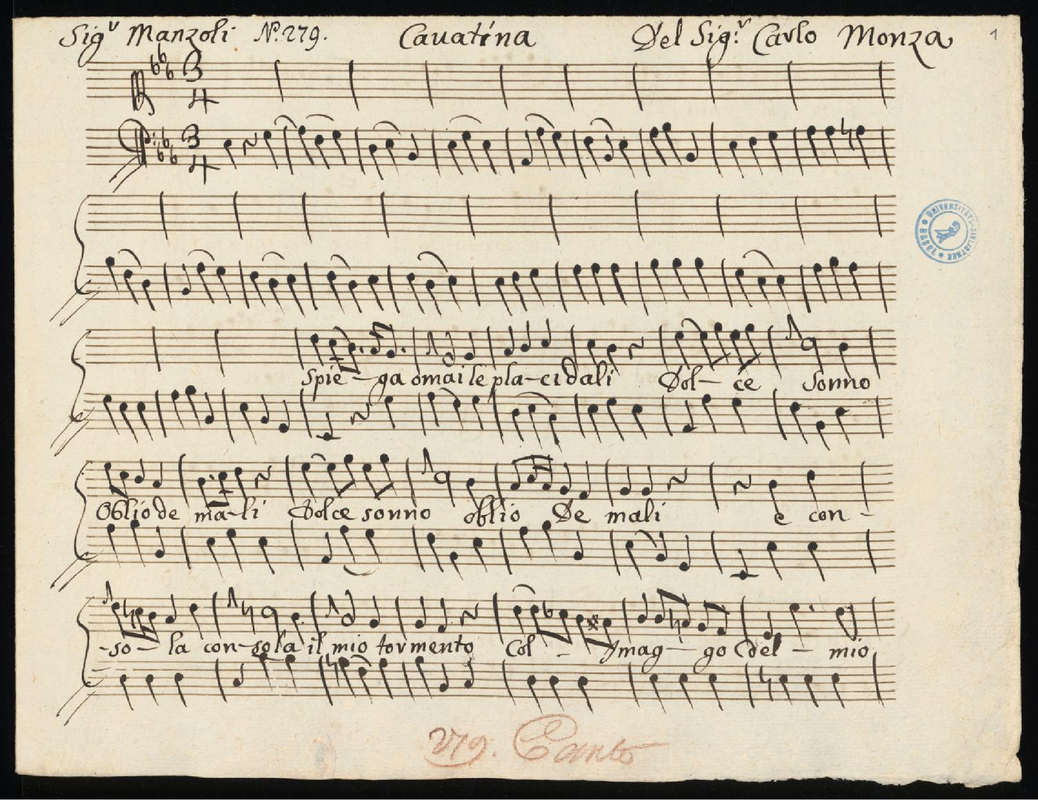 Sigʳ Manzoli Nº. 279. Cavatina Del Sigʳ Carlo Monza 1
3 4
3 4
UNIVERSITÄTS-BIBLIOTHEK * BASEL *
Spie - ga omai le pla - cid ali Dol - ce Sonno
Oblio de ma - li Dolce sonno oblio De mali e con -
- so - la con - sola il mio tormento Col - Imag - go del - mio
279. Canto